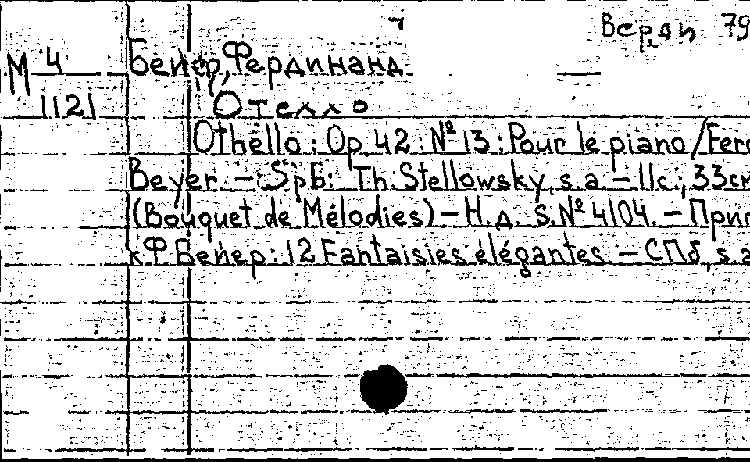 Верди 79
М 4 Бейер, Фердинанд
1121 Отелло
Othello : Op. 42. № 13 : Pour le piano / Ferd
Beyer. – Spб : Th. Stellowsky, s. a. – 11 с.; 33 см
(Bouquet de Mélodies) – Н. д. S. № 4104. – Прип
к Ф. Бейер : 12 Fantaisies élégantes – СПб, s. a